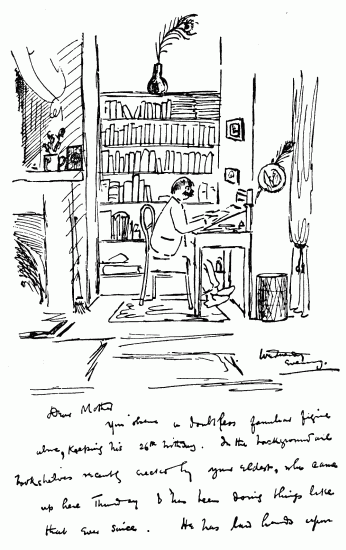 Wednesday
Evening.
Dear Mother
You observe a doubtless familiar figure
above, keeping his 26th birthday. In the background are
bookshelves recently erected by your eldest, who came
up here Thursday & has been doing things like
that ever since. He has laid hands upon